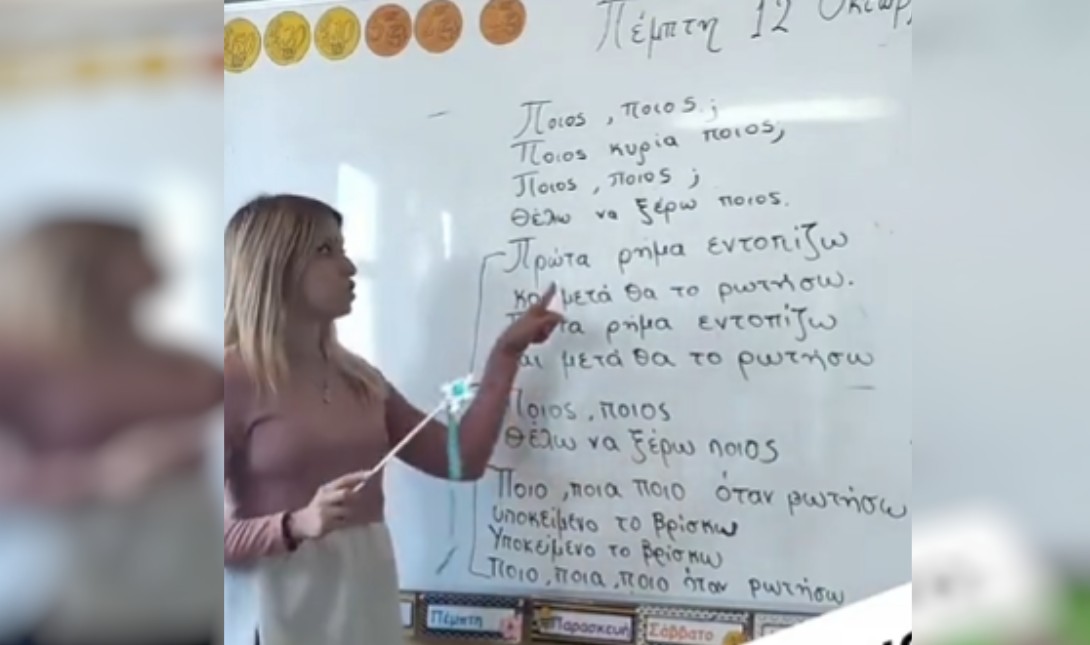 Πέμπτη 12
Ποιος, ποιος;
Ποιος κυρία ποιος;
Ποιος, ποιος;
Θέλω να ξέρω ποιος.
Πρώτα ρήμα εντοπίζω
μετά θα το ρωτήσω.
ρήμα εντοπίζω
μετά θα το ρωτήσω
Ποιος, ποιος
Θέλω να ξέρω ποιος
Ποιο, ποια ποιο όταν ρωτήσω
υποκείμενο το βρίσκω
Υποκείμενο το βρίσκω
Ποιο, ποια, ποιο όταν ρωτήσω
Πέμπτη Παρασκευή Σάββατο